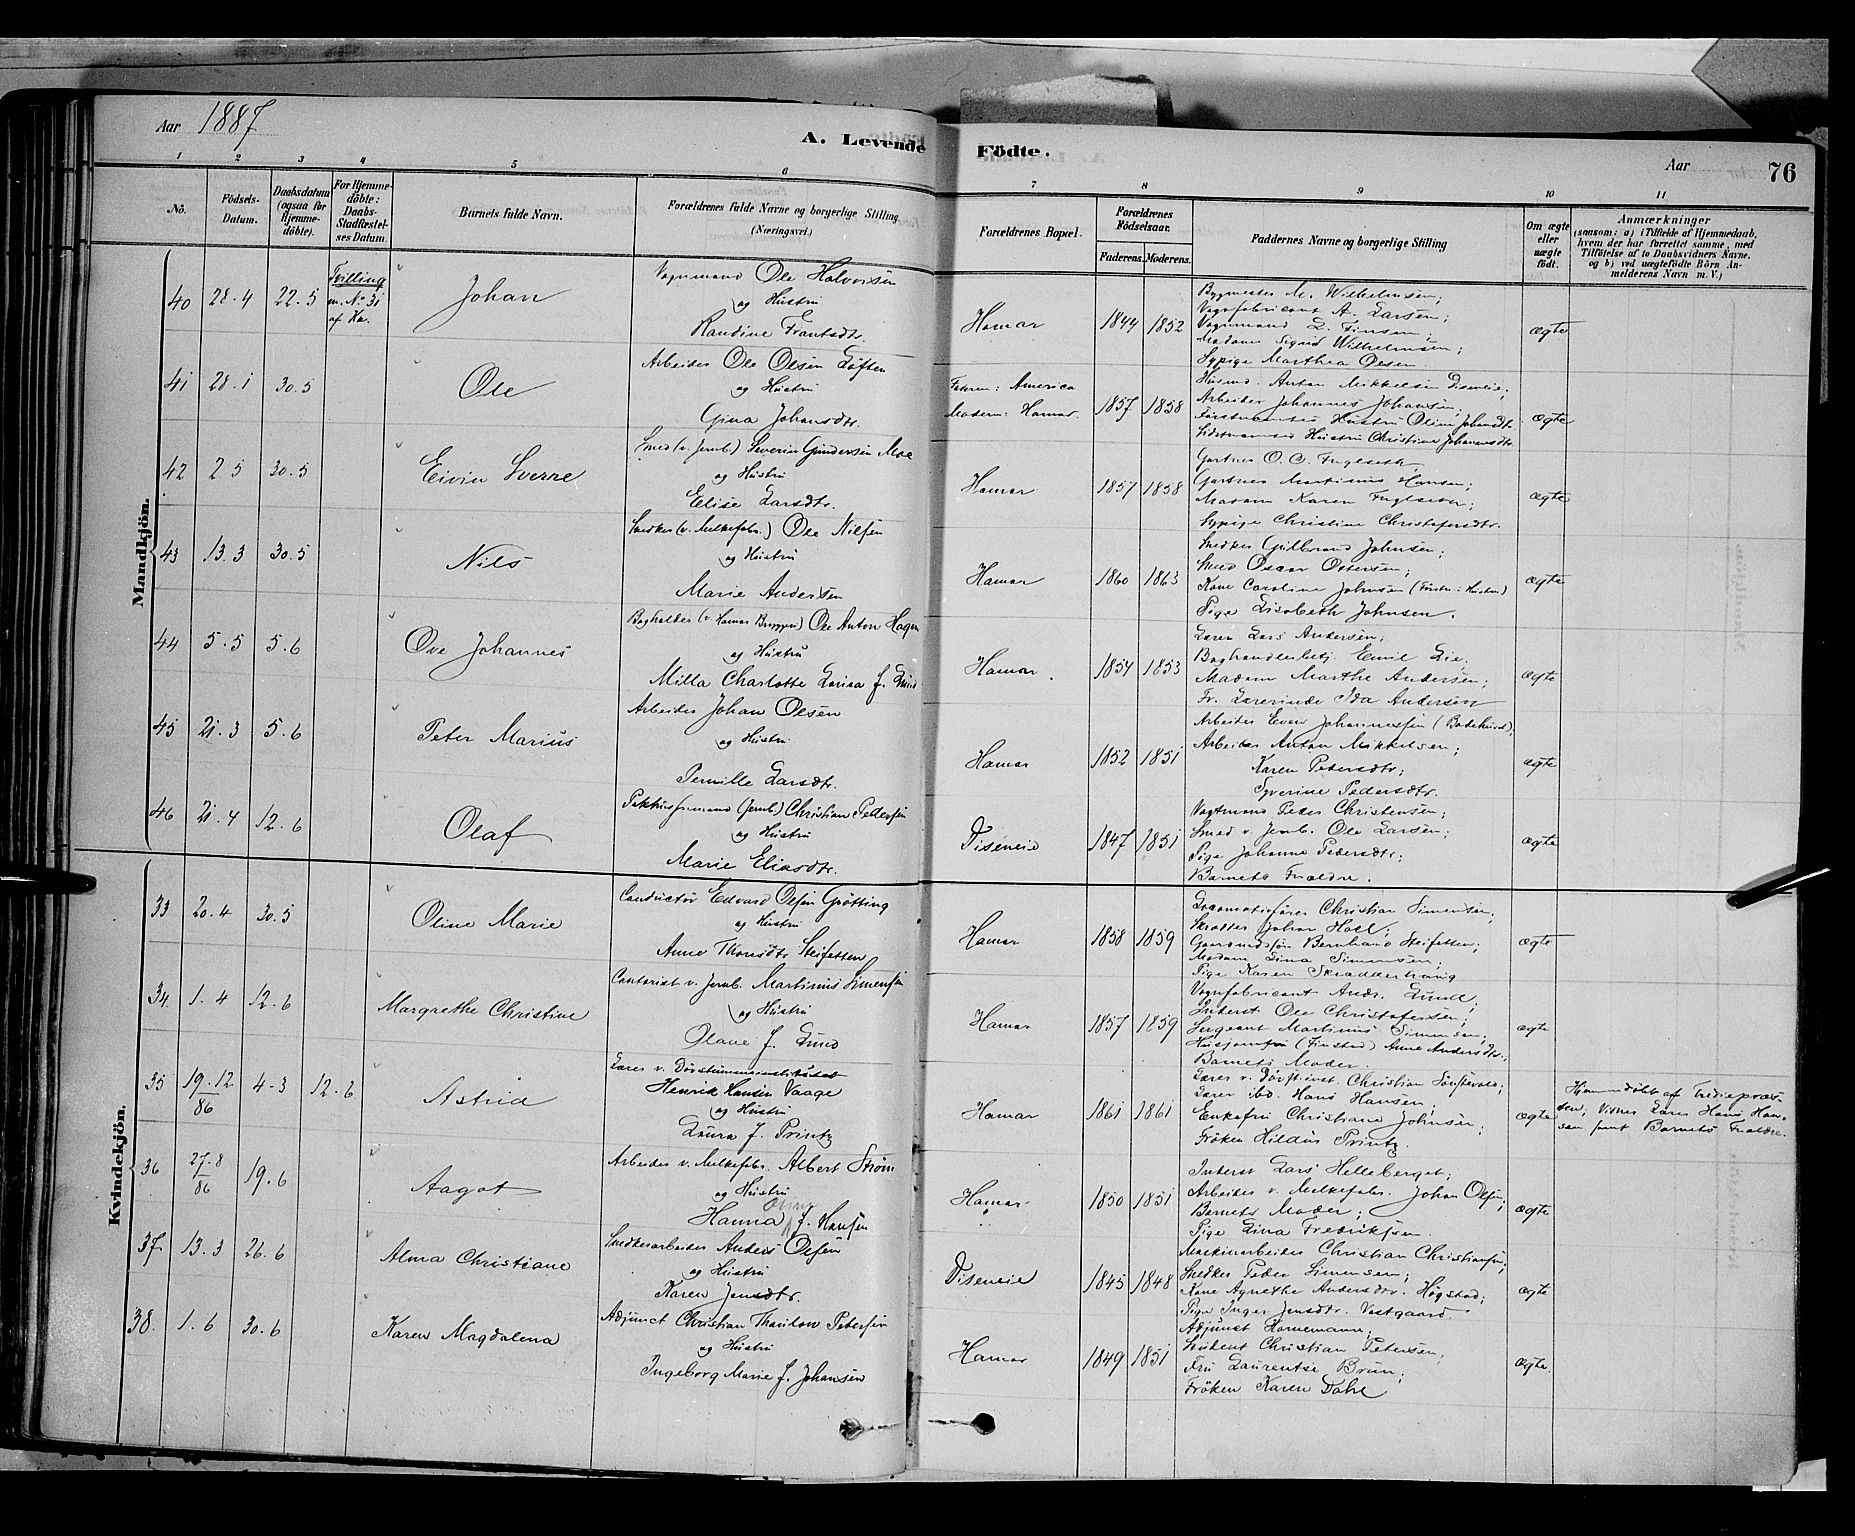 Aar 1887
A. Levende Födte.
Aar 76
1 2 3 4 5 6 7 8 9 10 11
No.
Födsels-Datum.
Daabsdatum (ogsaa for Hjemme-döbte).
For Hjemme-döbte: Daabs-Stadfæstel-ses Datum.
Barnets fulde Navn.
Forældrenes fulde Navne og borgerlige Stilling (Næringsvei.)
Forældrenes Bopæl.
Forældrenes Födselsaar.
Faderens. Moderens.
Faddernes Navne og borgerlige Stilling
Om ægte eller uægte födt.
Anmærkninger
(saasom: a) i Tilfælde af Hjemmedaab,
hvem der har forrettet samme, med
Tilföielse af to Daabsvidners Navne,
og b) ved uægtefödte Börn An-
melderens Navn m. V.)
Mandkjön.
40 28.4 22.5 Tvilling m. No 31 af Kv. Johan
Vognmand Ole Halvorsen
og Hustru
Randine Frantsdtr.
Hamar 1844 1852
Bygmester M. Wilhelmsen;
Vognfabricant A. Larsen;
Vognmand L. Finsen;
Madam Sigrid Wilhelmsen;
Sypige Marthea Olsen.
ægte
41 28.1 30.5 Ole
Arbeider Ole Olsen Løften
og Hustru
Gina Johansdtr.
Faderen: America
Moderen: Hamar. 1857 1858
Husmd. Anton Mikkelsen Diseneie;
Arbeider Johannes Johansen;
Hustru Oline Johansdtr
Hustru Christine Johannesdtr
ægte
42 2.5 30.5 Eivin Sverre
Smed (v. Jernb.) Severin Gundersen Moe
og Hustru
Elise Larsdtr.
Hamar 1857 1858
Gartner O. C. Fuglseth,
Gartner Martinius Hansen;
Madam Karen Fuglseth;
Sypige Christine Christofersdtr.
ægte
43 13.3 30.5 Nils
Snedker (v. Melkefabr.) Ole Nilsen
og Hustru
Marie Andersen
Hamar 1860 1863
Snedker Gulbrand Johnsen;
Smed Oscar Ottersen;
Kone Caroline Johnsen
Pige Elisabeth Johnsen.
ægte
44 5.5 5.6 Ove Johannes
Bogholder (v. Hamar Bryggeri) Ole Anton Hagen
og Hustru
Milla Charlotte Lovisa f. Lund
Hamar. 1854 1853
Lærer Lars Andersen;
Boghandlerbetj. Emil Lie;
Madam Marthe Andersen;
Fr. Lærerinde Ida Andersen
ægte
45 21.3 5.6 Peter Marius
Arbeider Johan Olsen
og Hustru
Pernille Larsdtr.
Hamar 1852 1851
Arbeider Even Johannessen
Arbeider Anton Mikkelsen;
Karen Pedersdtr;
Syverine Pedersdtr.
ægte
46 21.4 12.6 Olaf
Pakhusformand (Jernb.) Christian Pedersen
og Hustru
Marie Eliasdtr.
Diseneie 1847 1851
Vogtmand Peder Christensen;
Smed v. Jernb. Ole Larsen;
Pige Johanne Pedersdtr;
Barnets Forældre.
ægte
Kvindekjön.
33 20.4 30.5 Oline Marie
Conductør Edvard Olsen Grötting
og Hustru
Anne Thoresdtr Steifetten
Hamar 1858 1859
Locomotivfører Christian Simensen;
Skrædder Johan Hoel;
Gaardmdssøn Bernhard Steifetten;
Madam Lina Simensen;
Pige Karen Skrædderhaug
ægte
34. 1.4 12.6 Margrethe Christine
Contorist v. Jernb. Martinius Simensen
og Hustru
Olava f. Lund
Hamar 1857 1859
Vognfabricant Andr. Lund;
Inderst Ole Christofersen;
Sergeant Martinius Simensen;
Husjomfru (Finstad) Anne Andersdtr;
Barnets Moder.
ægte
35 19.12/86 4-3 12.6 Astrid
Lærer v. Døvstummeinstitutet
Henrik Hansen Vaage
og Hustru
Laura f. Printz
Hamar 1861 1861
Lærer v. Døvst.inst. Christian
Lærer ibd. Hans Hansen;
Enkefru Christiane Johnsen;
Frøken Hildus Printz.
ægte
Hjemmedöbt af Stiftspræ-
sten, Vidner Lærer Hans Han-
sen samt Barnets Forældre.
36 27.8/86 19.6 Aagot
Arbeider v. Melkefabr. Albert Strøm
og Hustru
Hanna f. Hansen
Hamar 1850 1851
Inderst Lars Helleberget;
Arbeider v. Melkefabr. Johan Olsen;
Barnets Moder;
Pige Lina Fredriksen.
ægte
37 13.3 26.6 Alma Christiane
Snedkerarbeider Anders Olsen
og Hustru
Karen Jensdtr.
Diseneie 1845 1848
Maskinarbeider Christian Christiansen;
Snedker Peder Simensen;
Kone Agnethe Andersdtr. Høgstad;
Pige Inger Jensdtr. Vestgaard.
ægte
38. 1.6 30.6 Karen Magdalena
Adjunct Christian Thaulow Petersen
og Hustru
Ingeborg Marie f. Johansen
Hamar 1849 1851
Adjunct Hornemann;
Student Christian Petersen;
Fru Laurentse Brun;
Frøken Karen Dahl
ægte